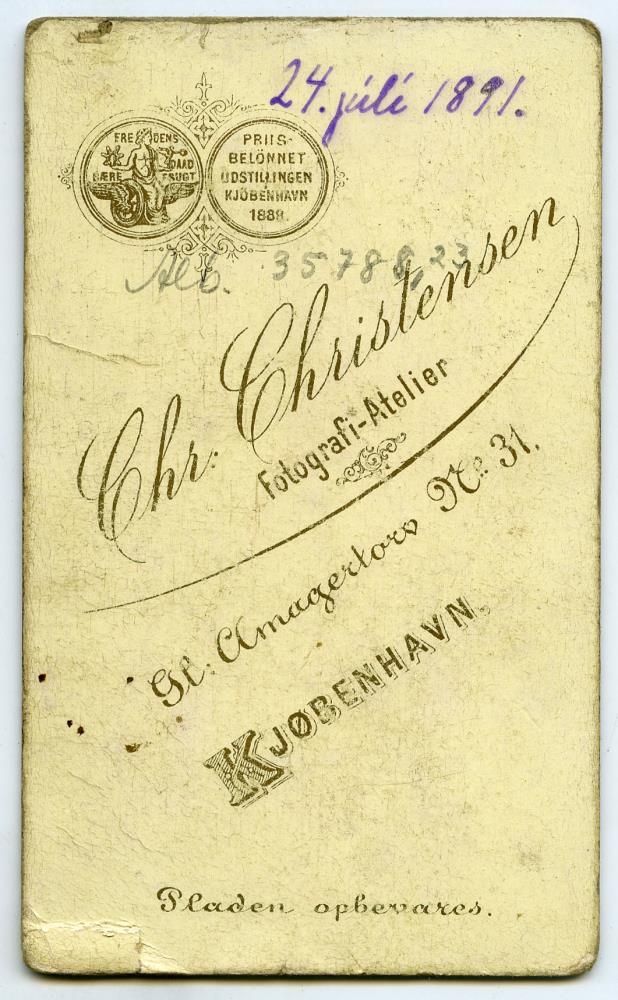 24. júlí 1891.
FREDENS DAAD
BÆRE FRUGT
PRIIS-
BELÖNNET
UDSTILLINGEN
KJÖBENHAVN
1888.
Alb. 35788,23
Chr: Christensen
Fotografi-Atelier
Gl: Amagertorv No. 31.
KJØBENHAVN.
Pladen opbevares.